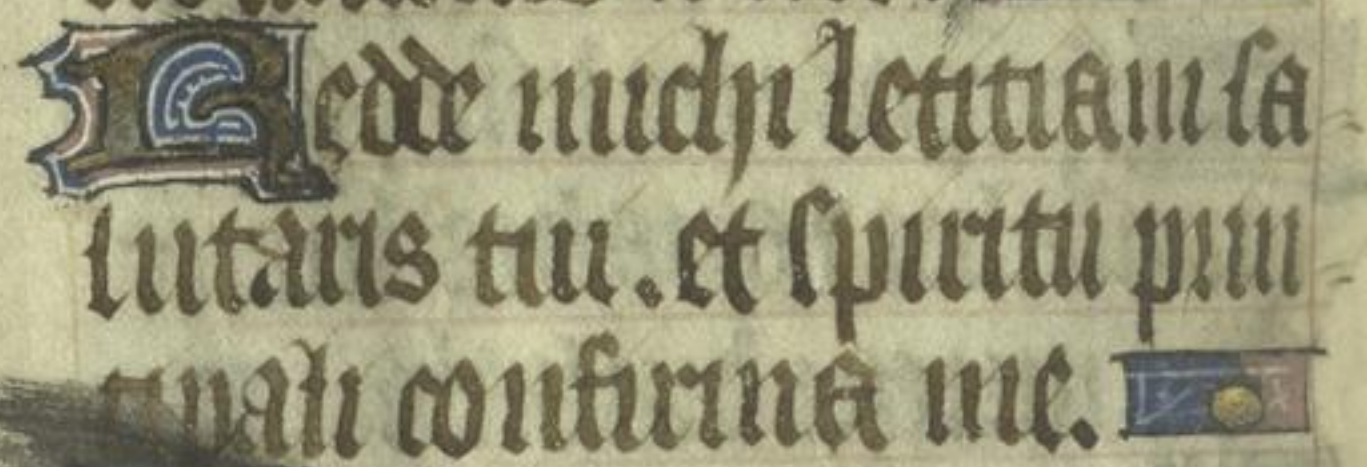 Redde michi letitiam sa
lutaris tui. et spiritu prin
cipali confirma me.